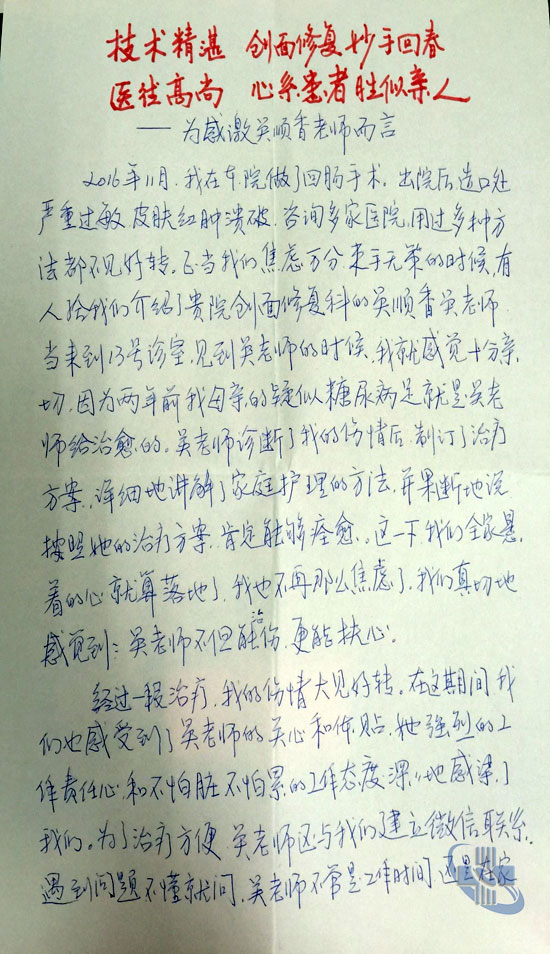 技术精湛 创面修复妙手回春
医德高尚 心系患者胜似亲人
——为感激吴顺香老师而言
2016年11月,我在东院做了回肠手术。出院后造口处
严重过敏 皮肤红肿溃破。咨询多家医院,用过多种方
法都不见好转。正当我们焦虑万分 束手无策的时候,有
人给我们介绍了贵院创面修复科的吴顺香吴老师
当来到13号诊室,见到吴老师的时候,我就感觉十分亲
切,因为两年前我母亲的疑似糖尿病足就是吴老
师给治愈的。吴老师诊断了我的伤情后,制订了治疗
方案,详细地讲解了家庭护理的方法,并果断地说
按照她的治疗方案,肯定能够痊愈。这一下,我们全家悬
着的心就算落地了,我也不再那么焦虑了。我们真切地
感觉到:吴老师不但能治伤,更能扶心。
经过一段治疗,我的伤情大见好转。在这期间我
们也感受到了吴老师的关心和体贴,她强烈的工
作责任心 和不怕脏不怕累的工作态度深深地感染了
我们。为了治疗方便,吴老师还与我们建立微信联系,
遇到问题不懂就问,吴老师不管是工作时间 还是在家